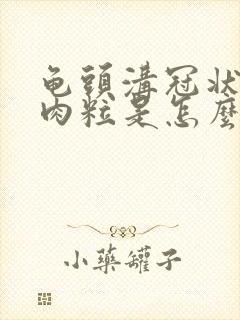 龟頭溝冠狀
肉粒是怎麼
小藥罐子